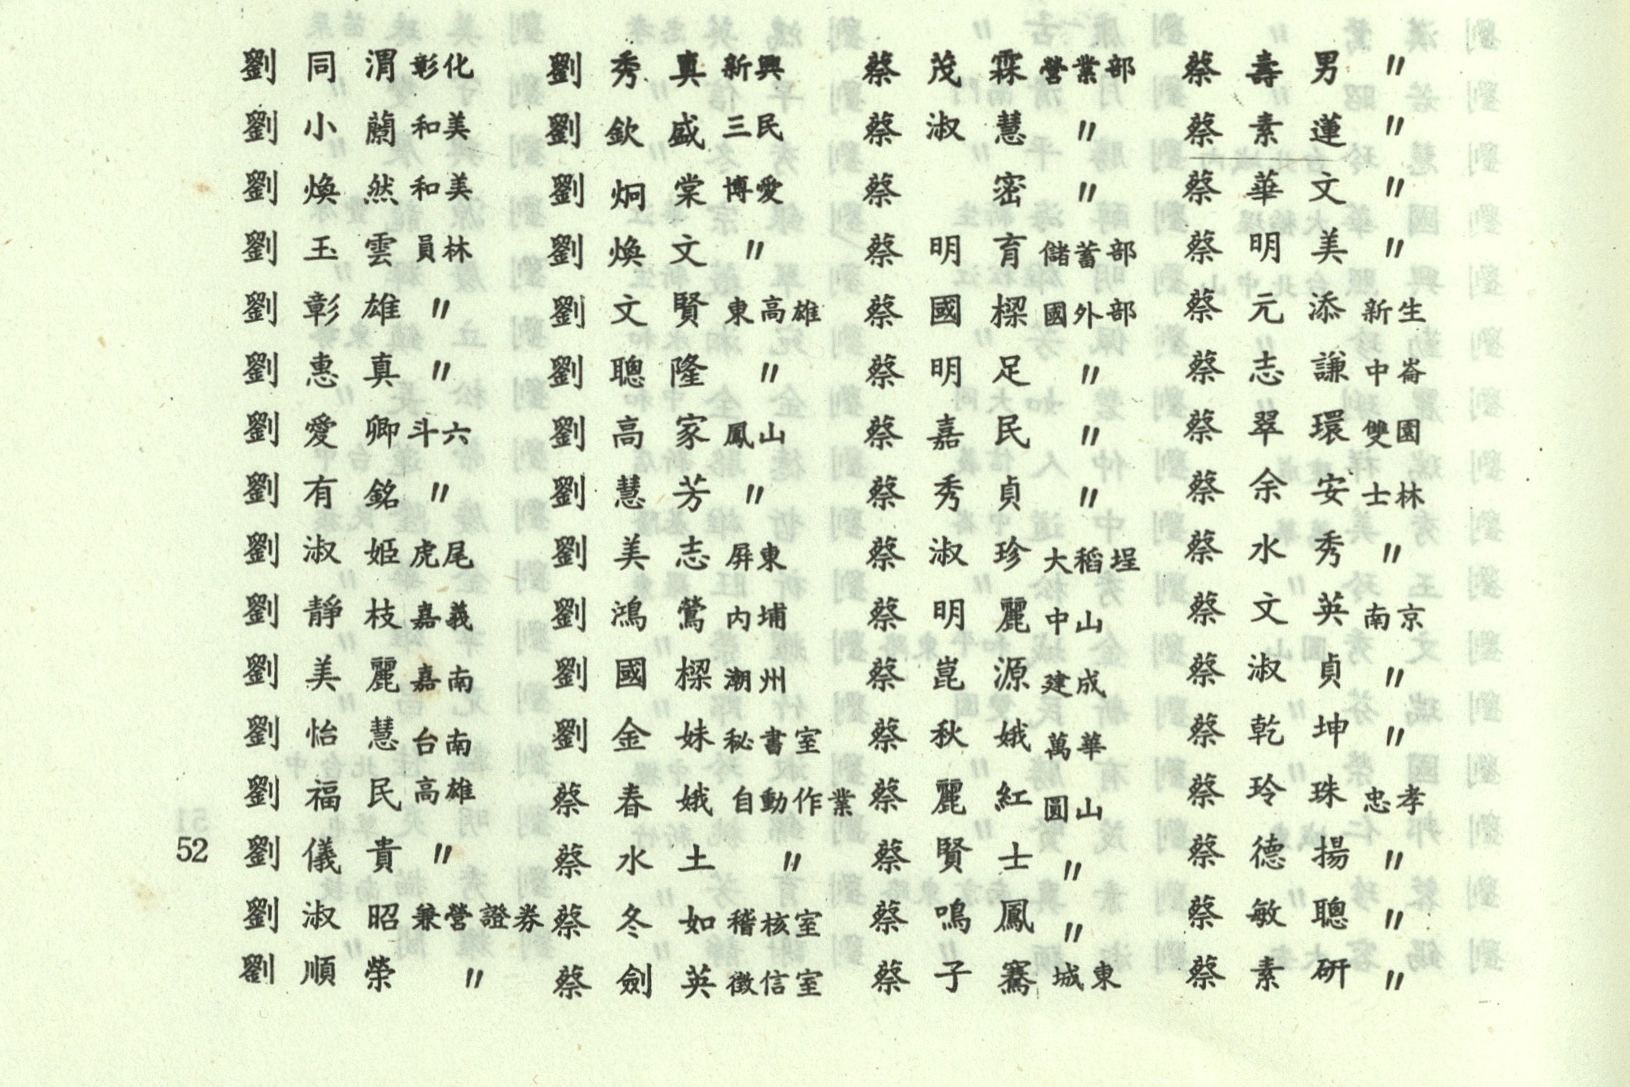 劉同渭 彰化
劉小蘭 和美
劉煥然 和美
劉玉雲 員林
劉彰雄 〃
劉惠真 〃
劉愛卿 斗六
劉有銘 〃
劉淑姬 虎尾
劉靜枝 嘉義
劉美麗 嘉南
劉怡慧 台南
劉福民 高雄
劉儀貴 〃
劉淑昭 兼營證券
劉順榮 〃
劉秀真 新興
劉欽盛 三民
劉炯棠 博愛
劉煥文 〃
劉文賢 東高雄
劉聰隆 〃
劉高家 鳳山
劉慧芳 〃
劉美志 屏東
劉鴻鶯 內埔
劉國樑 潮州
劉金妹 秘書室
蔡春娥 自動作業
蔡水土 〃
蔡冬如 稽核室
蔡劍英 徵信室
蔡茂霖 營業部
蔡淑慧 〃
蔡密 〃
蔡明育 儲蓄部
蔡國樑 國外部
蔡明足 〃
蔡嘉民 〃
蔡秀貞 〃
蔡淑珍 大稻埕
蔡明麗 中山
蔡崑源 建成
蔡秋娥 萬華
蔡麗紅 圓山
蔡賢士 〃
蔡鳴鳳 〃
蔡子騫 城東
蔡壽男 〃
蔡素蓮 〃
蔡華文 〃
蔡明美 〃
蔡元添 新生
蔡志謙 中崙
蔡翠環 雙園
蔡余安 士林
蔡水秀 〃
蔡文英 南京
蔡淑貞 〃
蔡乾坤 〃
蔡玲珠 忠孝
蔡德揚 〃
蔡敏聰 〃
蔡素研 〃
52